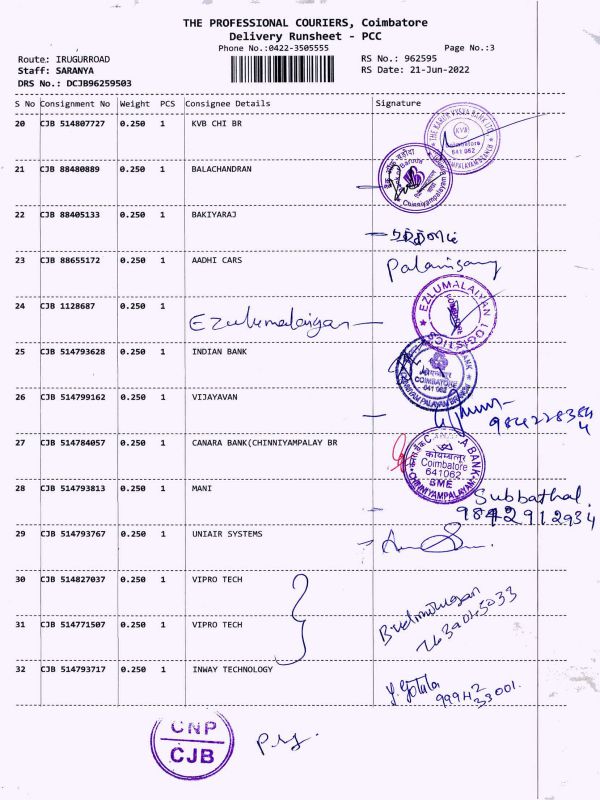 THE PROFESSIONAL COURIERS, Coimbatore
Delivery Runsheet - PCC
Phone No.:0422-3505555
Page No.:3
Route: IRUGURROAD
RS No.: 962595
Staff: SARANYA
RS Date: 21-Jun-2022
DRS No.: DCJB96259503
S No Consignment No Weight PCS Consignee Details Signature
20 CJB 514807727 0.250 1 KVB CHI BR
KVB
Coimbatore
641 062
21 CJB 88480889 0.250 1 BALACHANDRAN
Chinniyampalayam
22 CJB 88405133 0.250 1 BAKIYARAJ
23 CJB 88655172 0.250 1 AADHI CARS
Palanisamy
24 CJB 1128687 0.250 1
Ezhulumalaiyan
EZLUMALAIYAN LOGISTICS
25 CJB 514793628 0.250 1 INDIAN BANK
COIMBATORE
641 062
26 CJB 514799162 0.250 1 VIJAYAVAN
9842283844
27 CJB 514784057 0.250 1 CANARA BANK(CHINNIYAMPALAY BR
कोयम्बत्तूर
Coimbatore
641062
SME
CHINNIYAMPALAYAM
28 CJB 514793813 0.250 1 MANI
Subbathal.
9842912934
29 CJB 514793767 0.250 1 UNIAIR SYSTEMS
30 CJB 514827037 0.250 1 VIPRO TECH
31 CJB 514771507 0.250 1 VIPRO TECH
7639045033
32 CJB 514793717 0.250 1 INWAY TECHNOLOGY
99942
33001.
CNP
CJB